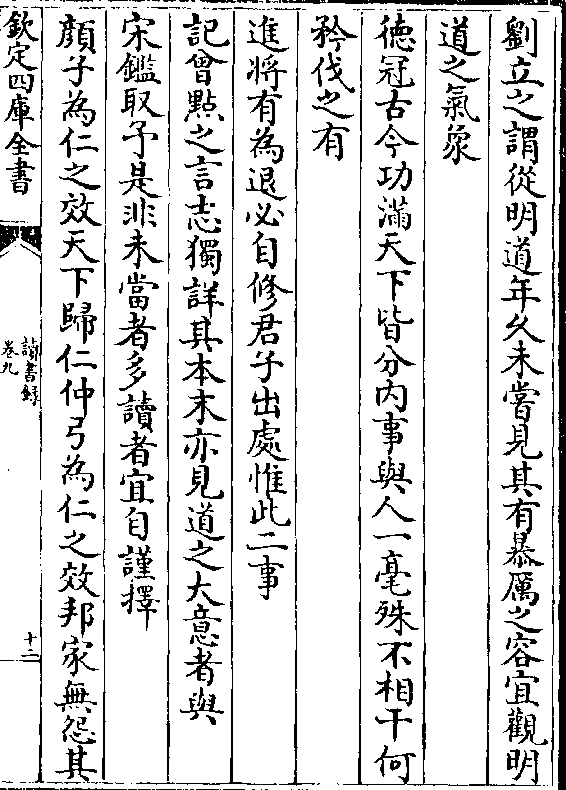 劉立之謂從明道年久未嘗見其有暴厲之容宜觀明
道之氣象
徳冠古今功滿天下皆分内事與人一毫殊不相干何
矜伐之有
進將有為退必自修君子出處惟此二事
記曾㸃之言志獨詳其本末亦見道之大意者與
宋鑑取予是非未當者多讀者宜自謹擇
顔子為仁之效天下歸仁仲弓為仁之效邦家無怨其
欽定四庫全書
讀書録
卷九
十二